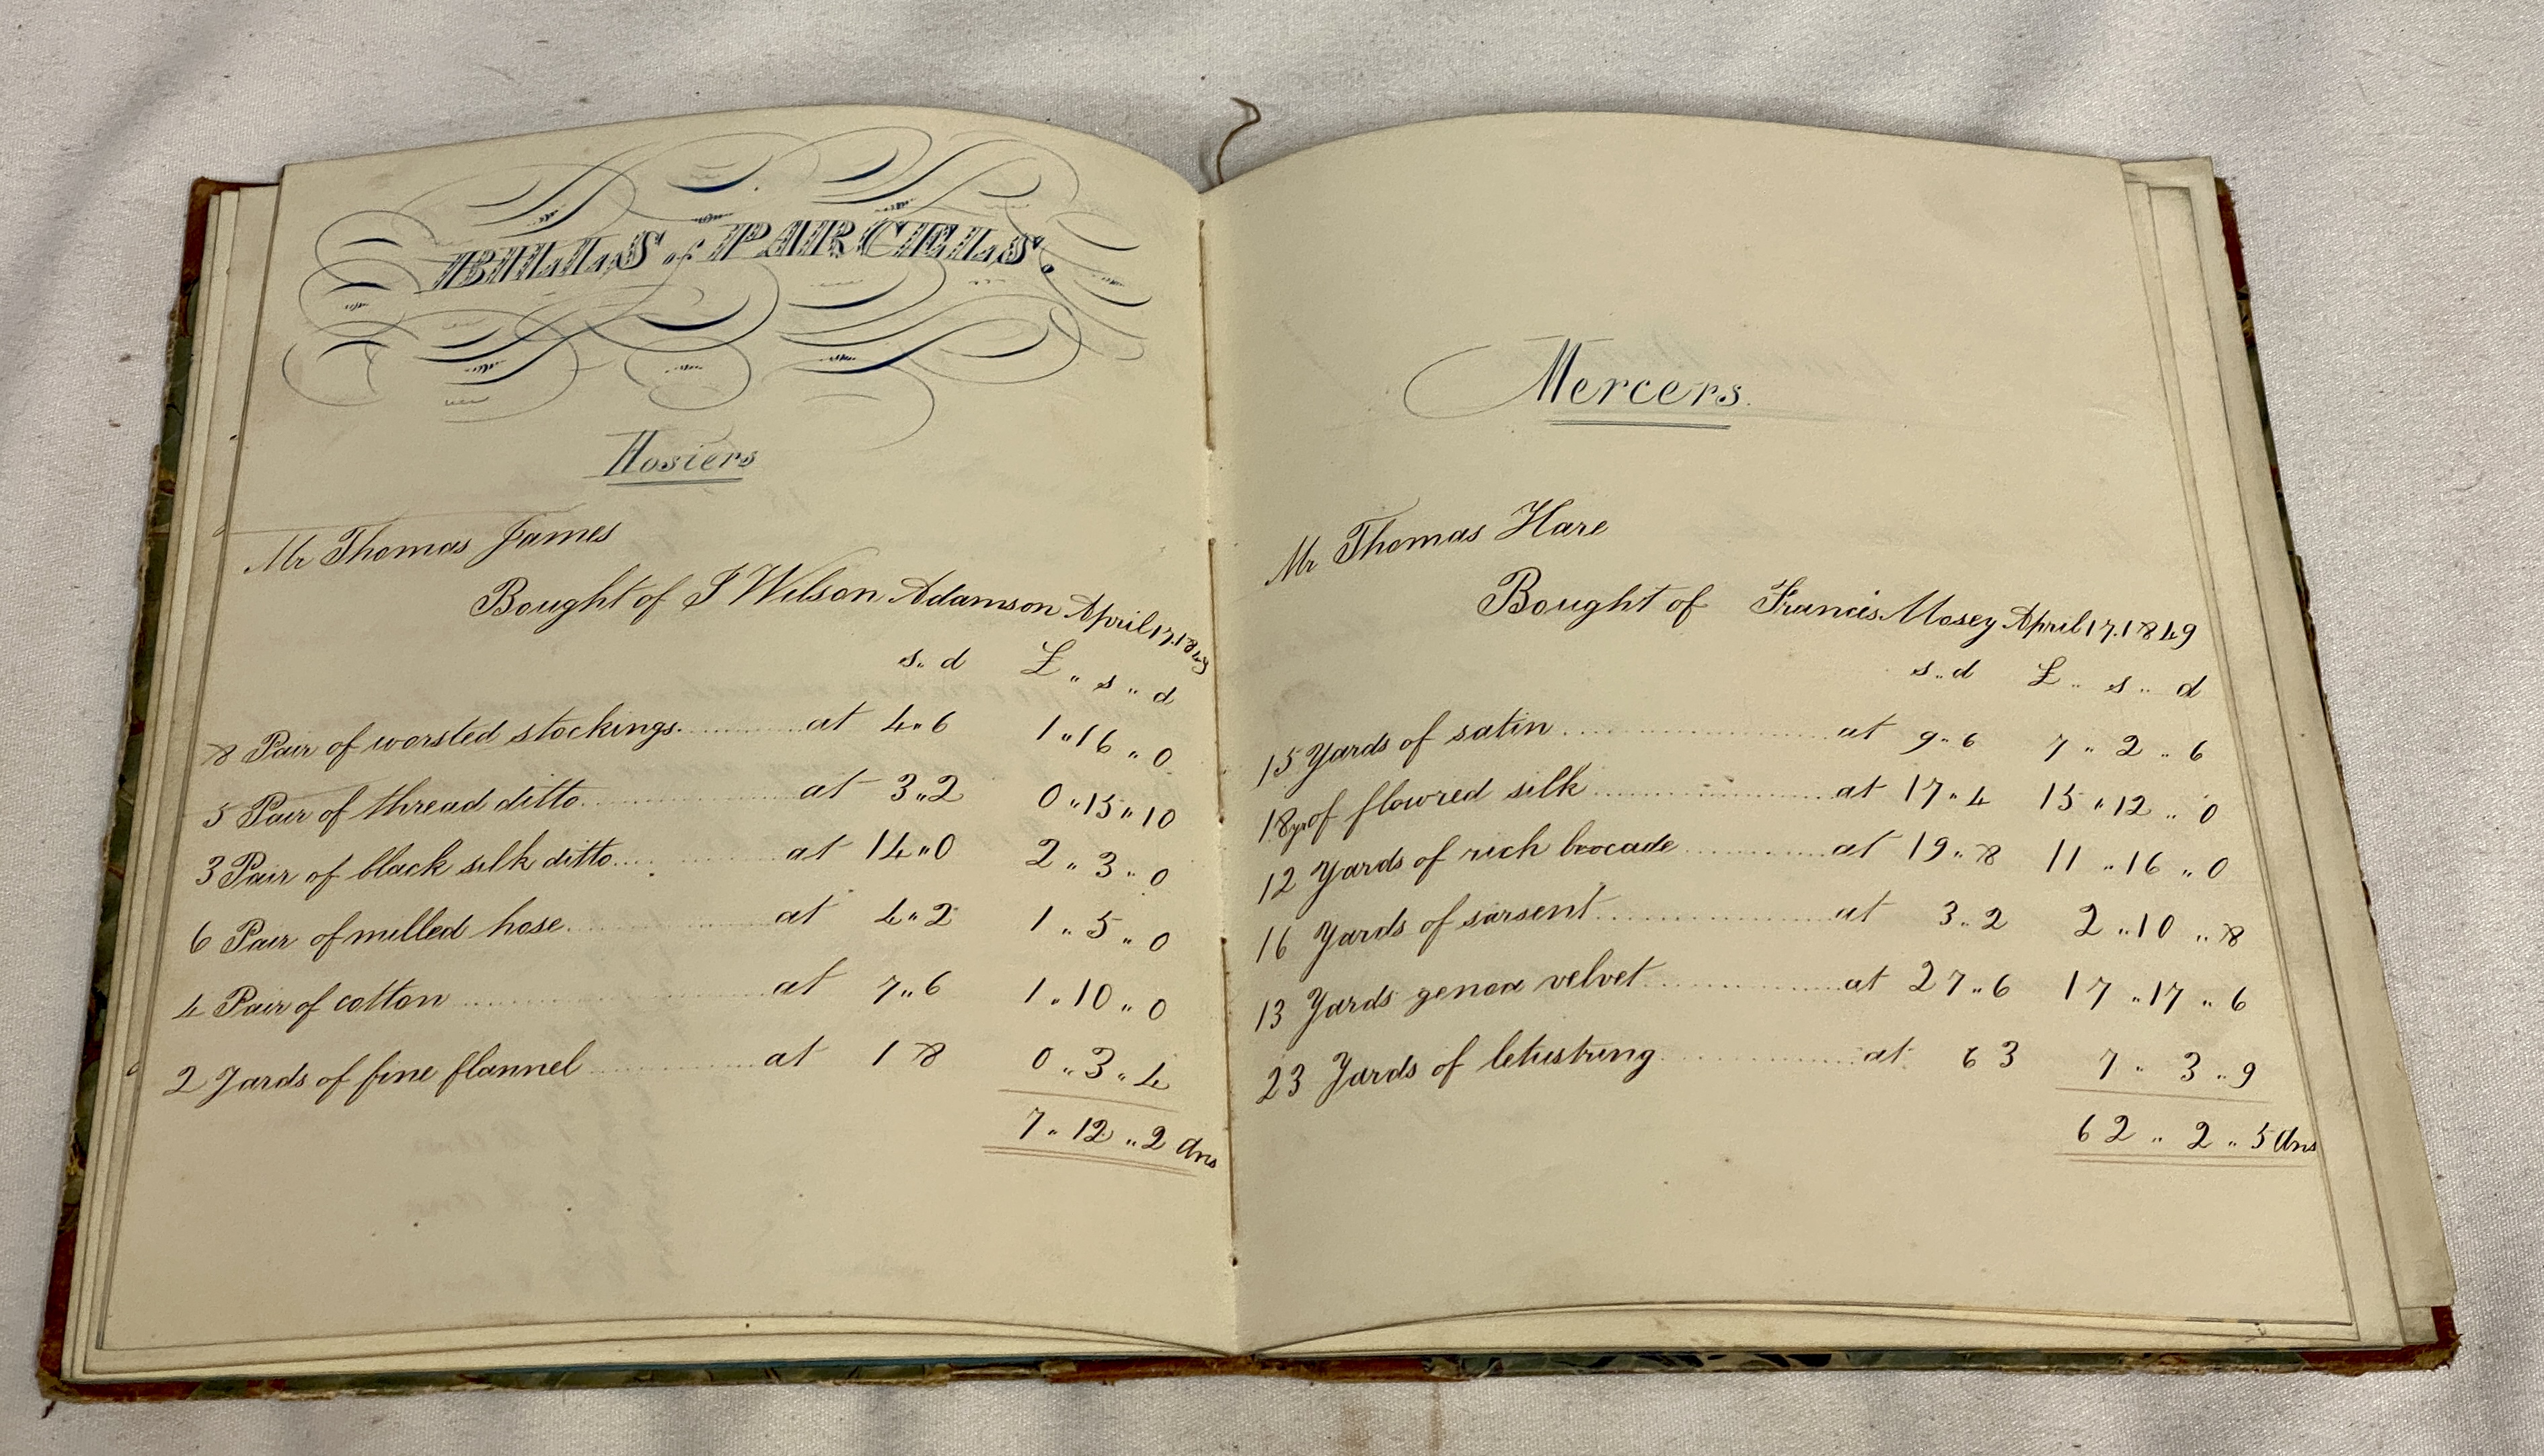 BILLS of PARCELS.
Hosiers
Mr Thomas James
Bought of J Wilson Adamson April 17. 1849
s.. d £ " s " d
8 Pair of worsted stockings. at 4..6 1 " 16 " 0
5 Pair of thread ditto at 3..2 0 " 15 " 10
3 Pair of black silk ditto at 14..0 2 " 3 " 0
6 Pair of milled hose at 4..2 1 " 5 " 0
4 Pair of cotton at 7..6 1 " 10 " 0
2 Yards of fine flannel at 1 8 0 " 3 " 4
7 " 12 " 2 Ans
Mercers.
Mr Thomas Hare
Bought of Francis Mosey April 17. 1849
s.. d £ " s " d
15 Yards of satin at 9..6 7 " 2 " 6
18 yrs of flowred silk at 17..4 15 " 12 " 0
12 Yards of rich brocade at 19..8 11 " 16 " 0
16 Yards of sarsent at 3..2 2 " 10 " 8
13 Yards genoa velvet at 27..6 17 " 17 " 6
23 Yards of letustring at 6 3 7 " 3 " 9
62 " 2 " 5 Ans